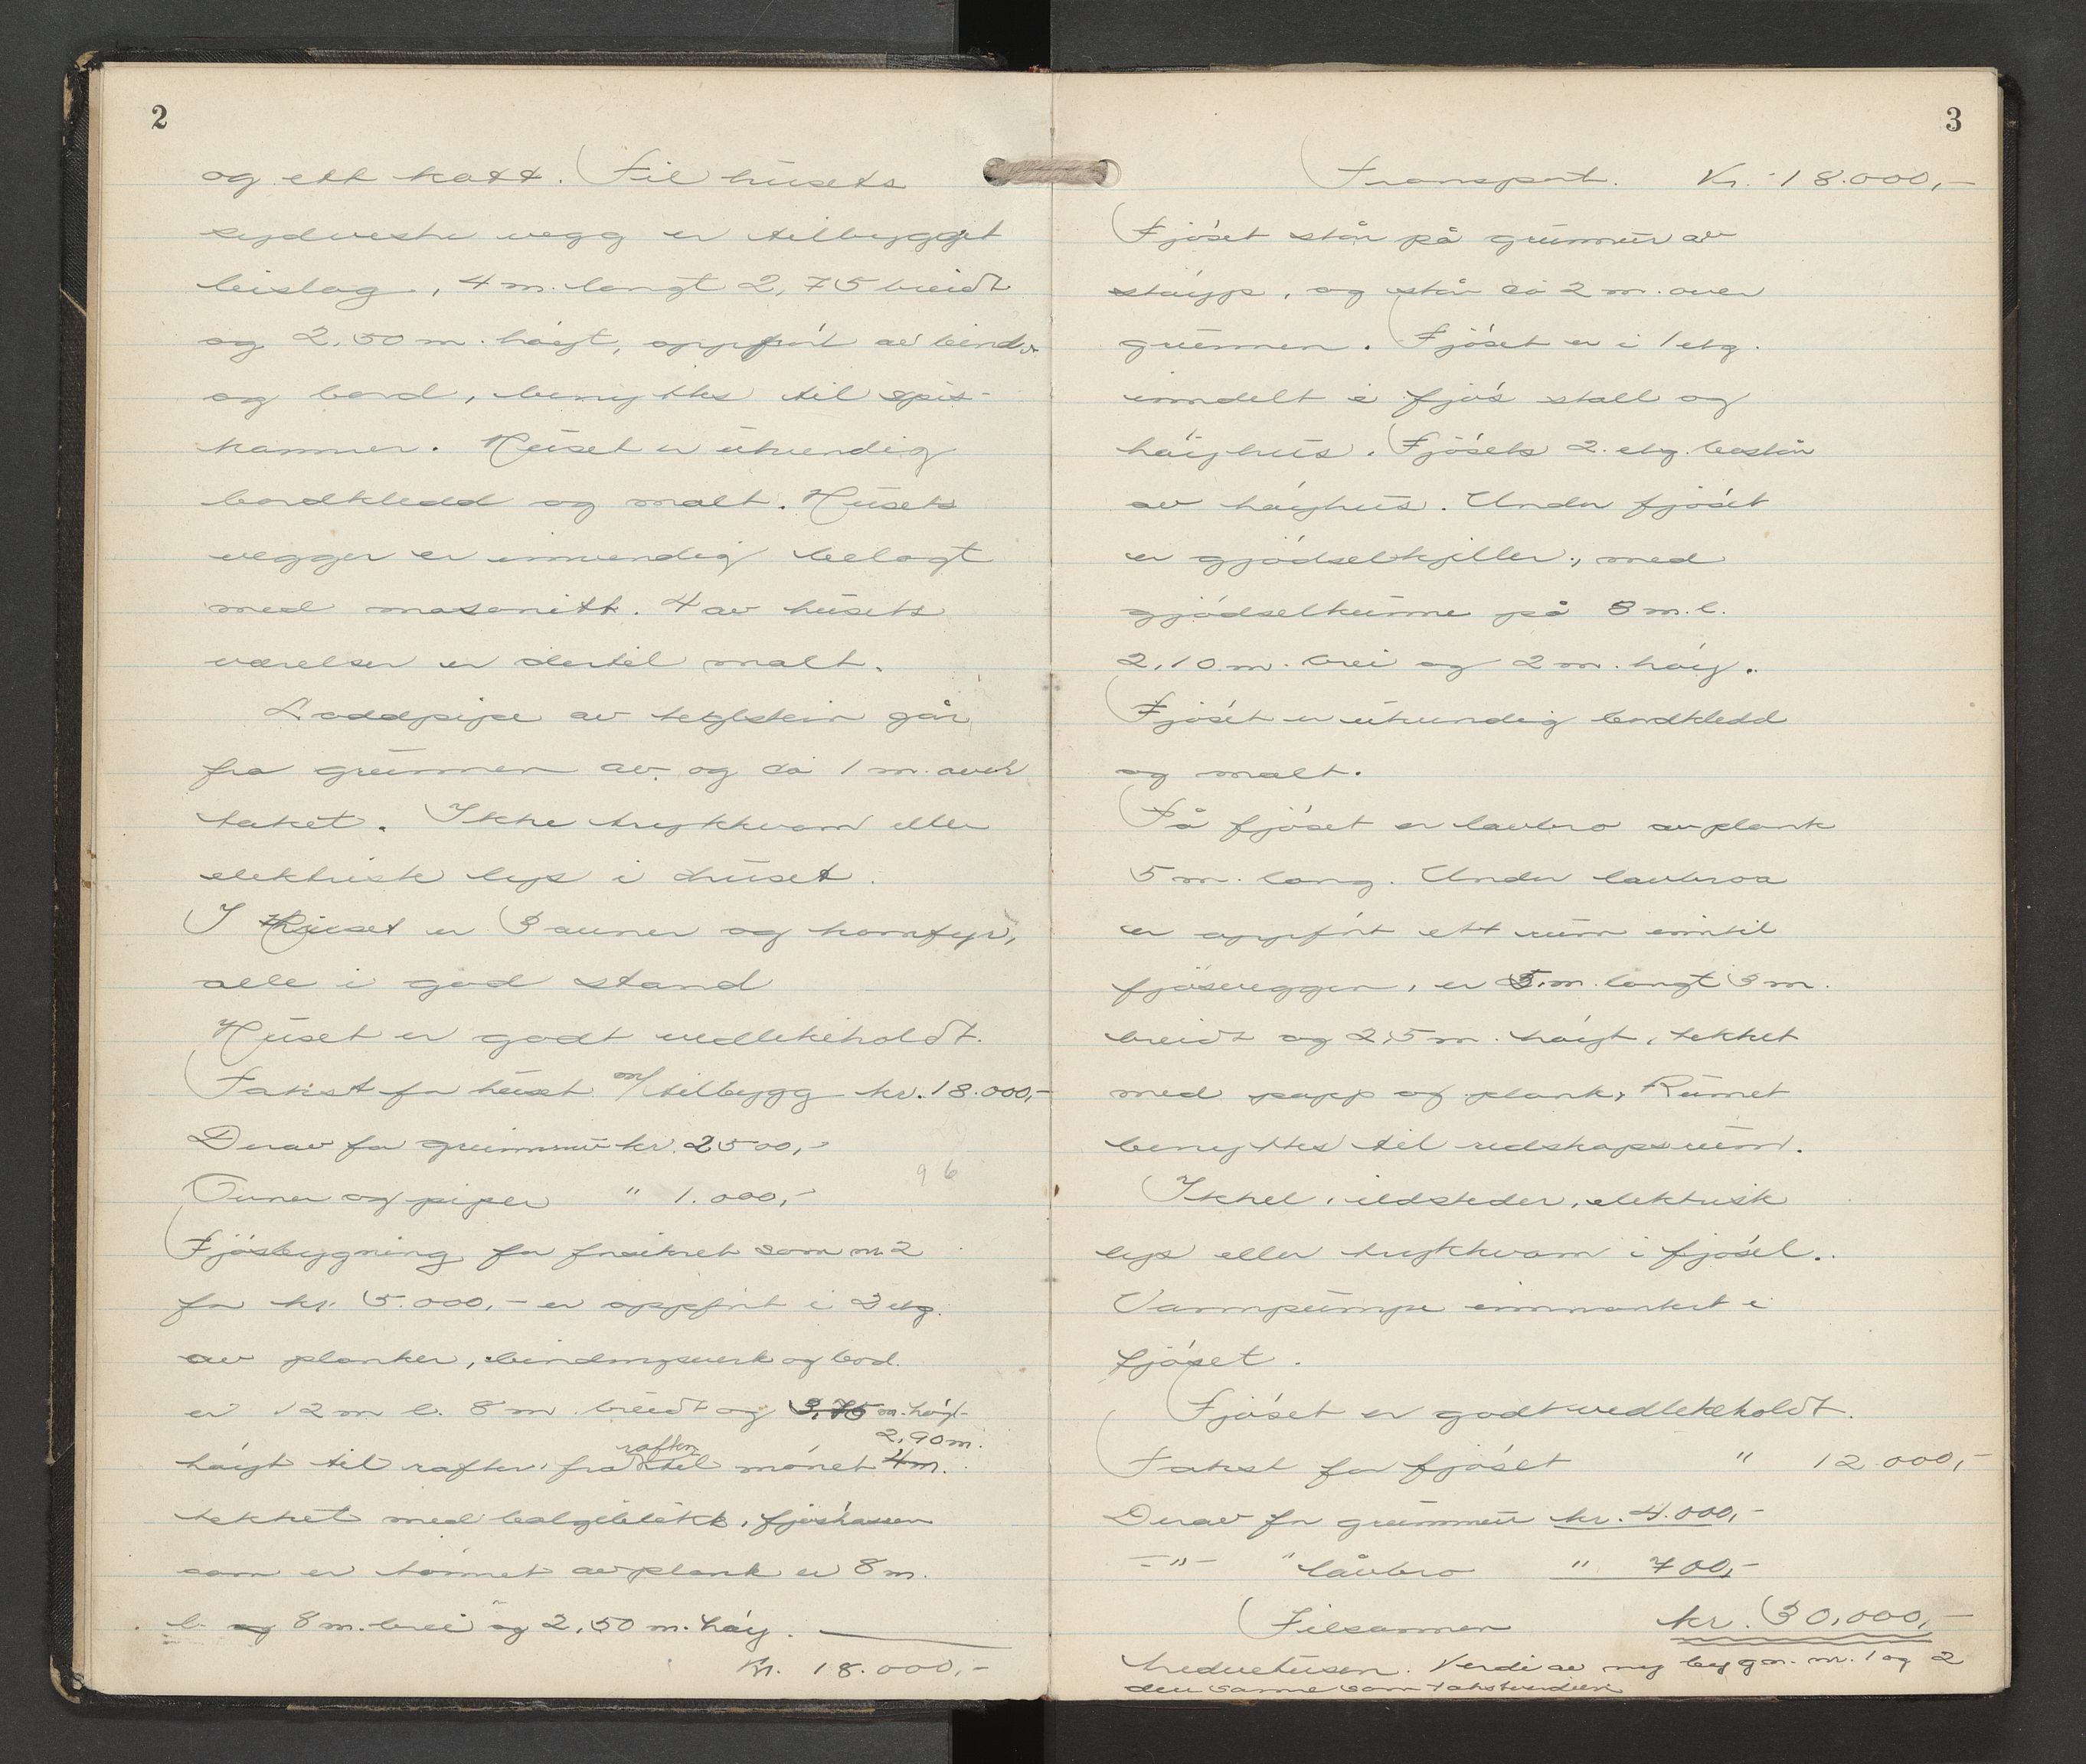 2
og ett kott. Til husets
sydvestre vegg er tilbygget
beislag, 4 m. langt 2,75 breidt
og 2,50 m. høigt, oppført av bindv.
og bord, benyttes til spis-
kammer. Huset er utvendig
bordkledd og malt. Husets
vegger er innvendig belagt
med masonitt. 4 av husets
værelser er dertil malt.
Loddpipe av teglstein går
fra grunnen av og ca 1 m. over
taket. Ikke trykkvann eller
elektrisk lys i huset.
I Huset er 3 ovner og komfyr,
alle i god stand
Huset er godt vedlikeholdt.
Takst for huset m/tilbygg kr. 18.000,-
Derav for grunnmur kr. 2500,-
96
Ovner og piper " 1.000,-
Fjøsbygning før forsikret som nr 2
for kr. 5.000,- er oppført i 2 etg.
av planker, bindingsverk og bord.
er 12 m l. 8 m. breidt og 3,75 m. høgt
2,90 m.
høigt til rafter, fra raften til mønet 4 m.
tekket med bølgeblikk, fjøskassen
som er tømret av plank er 8 m.
l. og 8 m. brei og 2,50 m. høig.
Kr. 18.000,-
3
Transport. Kr. 18.000,-
Fjøset står på grunnmur av
støypp, og står ca 2 m. over
grunnen. Fjøset er i 1 etg.
inndelt i fjøs stall og
høighus. Fjøsets 2. etg. består
av høighus. Under fjøset
er gjødselkjeller, med
gjødselkumme på 8 m. l.
2,10 m. brei og 2 m. høig.
Fjøset er utvendig bordkledd
og malt.
På fjøset er låvbro av plank
5 m. lang. Under låvbroa
er oppført ett rum inntil
fjøsveggen, er 5 m. langt 3 m.
breidt og 2,5 m. høigt, tekket
med papp og plank, Rumet
benyttes til redskapsrum.
Ikke ildsteder, elektrisk
lys eller trykkvann i fjøset.
Vannpumpe innmontert i
fjøset.
Fjøset er godt vedlikeholdt.
Takst for fjøset " 12.000,-
Derav for grunnmur kr. 4.000,-
-"- " låvbro " 700,-
Tilsammen kr. 30,000,-
tredvetusen. Verdi av ny bygn. nr. 1 og 2
den samme som takstverdien